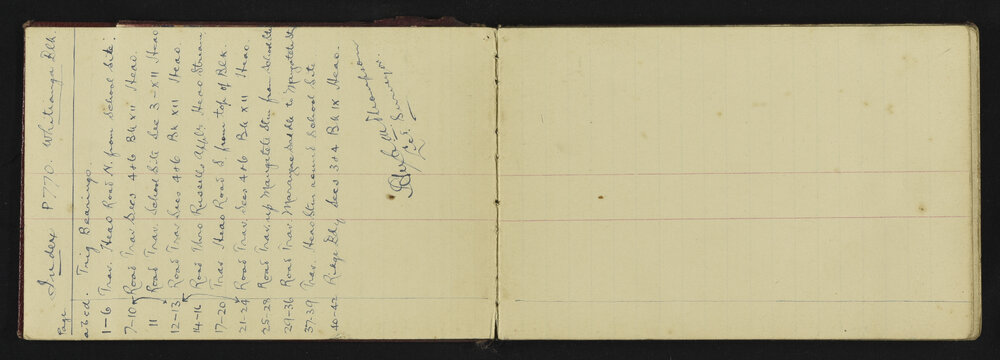 Page Index P770. Whitianga Blk
abcd. Trig Bearings.
1-6 Trav. Heao Road N. from School Site.
7-10 Road Trav. Secs 4+6 Blk XII Heao.
11 Road Trav. School Site Sec 3 - XII Heao
12-13 Road Trav Secs 4+6 Bk XII Heao
14-16 Road Thro Russells Appln Heao Stream
17-20 Trav Heao Road S. from top of Blk
21-24 Road Trav. Secs 4+6 Bk XII Heao.
25-28 Road Trav. up Mangatete Stm from School Site
29-36 Road Trav. Saddle to Mangatete St
37-39 Trav. Heao Stm round School Site
40-42 Ridge Bdy Secs 3+4 Bk IX Heao.
Thompson
Surveyor